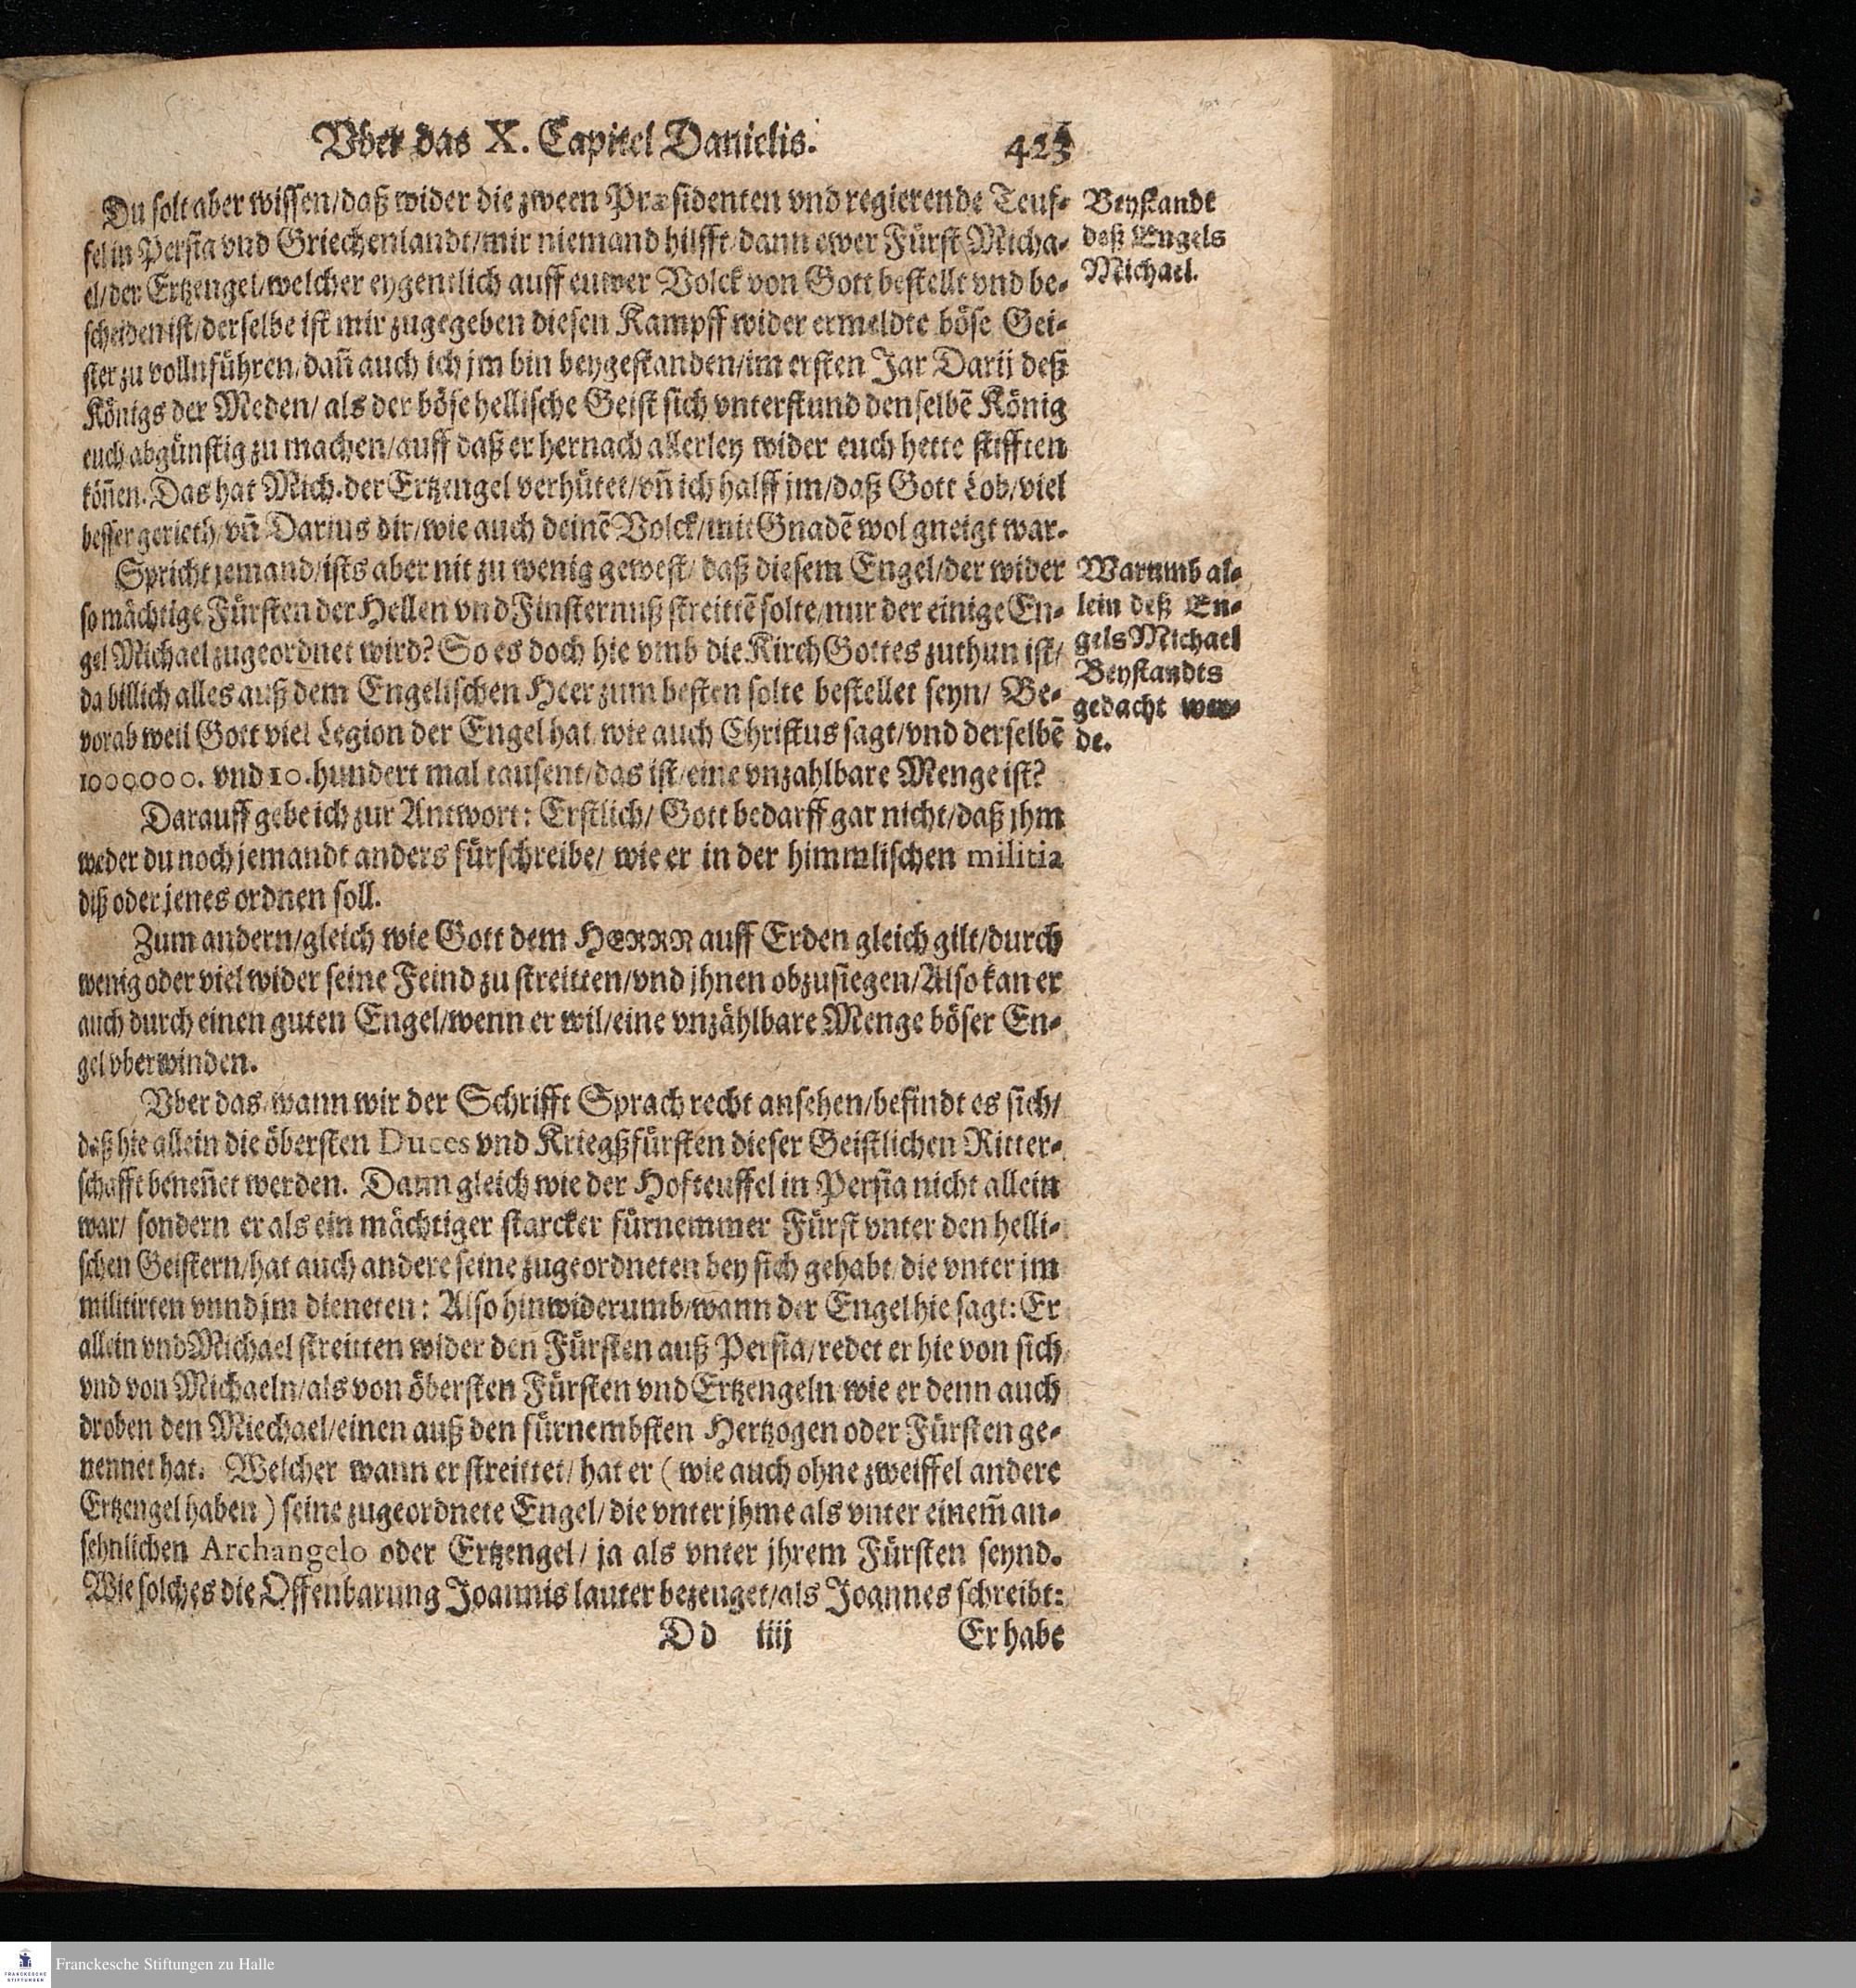 Vber das X. Capitel Danielis.
Du solt aber wissen/daß wider die zween Præsidenten vnd regierende Teuf-
fel in Persia vnd Griechenlandt/mir niemand hilfft/dann ewer Fürst Micha-
el/der Ertzengel/welcher eygentlich auff euwer Volck von Gott bestellt vnd be-
scheiden ist/derselbe ist mir zugegeben diesen Kampff wider ermeldte böse Gei-
ster zu vollnführen/dañ auch ich jm bin beygestanden/im ersten Jar Darij deß
Königs der Meden/als der böse hellische Geist sich vnterstund denselbẽ König
euch abgünstig zu machen/auff daß er hernach allerley wider euch hette stifften
köñen. Das hat Mich. der Ertzengel verhütet/vñ ich halff jm/daß Gott Lob/viel
besser gerieth/vñ Darius dir/wie auch deinẽ Volck/mit Gnadẽ wol gneigt war.
Beystandt
deß Engels
Michael.
Spricht jemand/ists aber nit zu wenig gewest/daß diesem Engel/der wider
so mächtige Fürsten der Hellen vnd Finsternuß streittẽ solte/nur der einige En-
gel Michael zugeordnet wird? So es doch hie vmb die Kirch Gottes zuthun ist/
da billich alles auß dem Engelischen Heer zum besten solte bestellet seyn/ Be-
vorab weil Gott viel Legion der Engel hat/wie auch Christus sagt/vnd derselbẽ
1000000. vnd 10. hundert mal tausent/das ist/eine vnzahlbare Menge ist?
Warumb al-
lein deß En-
gels Michael
Beystandts
gedacht wer-
de.
Darauff gebe ich zur Antwort: Erstlich/ Gott bedarff gar nicht/daß jhm
weder du noch jemandt anders fürschreibe/ wie er in der himmlischen militia
diß oder jenes ordnen soll.
Zum andern/gleich wie Gott dem HERRN auff Erden gleich gilt/durch
wenig oder viel wider seine Feind zu streitten/vnd jhnen obzusiegen/Also kan er
auch durch einen guten Engel/wenn er wil/eine vnzählbare Menge böser En-
gel vberwinden.
Vber das/wann wir der Schrifft Sprach recht ansehen/befindt es sich/
daß hie allein die öbersten Duces vnd Kriegßfürsten dieser Geistlichen Ritter-
schafft beneñet werden. Dann gleich wie der Hofteuffel in Persia nicht allein
war/ sondern er als ein mächtiger starcker fürnemmer Fürst vnter den helli-
schen Geistern/hat auch andere seine zugeordneten bey sich gehabt/die vnter jm
militirten vnnd jm dieneten: Also hinwiderumb/wann der Engel hie sagt: Er
allein vnd Michael streitten wider den Fürsten auß Persia/redet er hie von sich
vnd von Michaeln/als von öbersten Fürsten vnd Ertzengeln/wie er denn auch
droben den Miechael/einen auß den fürnembsten Hertzogen oder Fürsten ge-
nennet hat. Welcher wann er streittet/ hat er (wie auch ohne zweiffel andere
Ertzengel haben) seine zugeordnete Engel/die vnter jhme als vnter einem̃ an-
sehnlichen Archangelo oder Ertzengel/ ja als vnter jhrem Fürsten seynd.
Wie solches die Offenbarung Joannis lauter bezeuget/als Joannes schreibt:
Dd iiij Er habe
Franckesche Stiftungen zu Halle